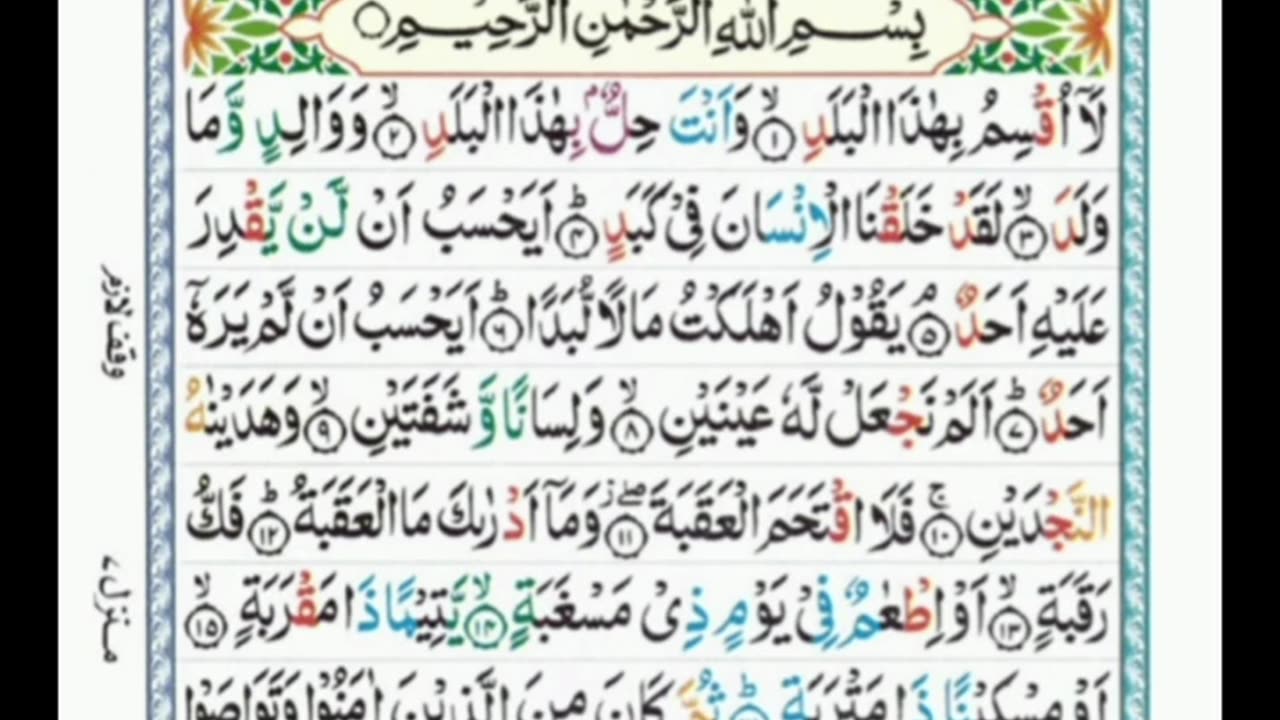 بِسْمِ اللّٰهِ الرَّحْمٰنِ الرَّحِيْمِ
لَاۤ اُقْسِمُ بِهٰذَا الْبَلَدِ ۙ﴿۱﴾ وَاَنْتَ حِلٌّۢ بِهٰذَا الْبَلَدِ ۙ﴿۲﴾ وَوَالِدٍ وَّمَا
وَلَدَ ۙ﴿۳﴾ لَقَدْ خَلَقْنَا الْاِنْسَانَ فِيْ كَبَدٍ ؕ﴿۴﴾ اَيَحْسَبُ اَنْ لَّنْ يَّقْدِرَ
عَلَيْهِ اَحَدٌ ۘ﴿۵﴾ يَقُوْلُ اَهْلَكْتُ مَالًا لُّبَدًا ؕ﴿۶﴾ اَيَحْسَبُ اَنْ لَّمْ يَرَهٗۤ
اَحَدٌ ؕ﴿۷﴾ اَلَمْ نَجْعَلْ لَّهٗ عَيْنَيْنِ ۙ﴿۸﴾ وَلِسَانًا وَّشَفَتَيْنِ ۙ﴿۹﴾ وَهَدَيْنٰهُ
النَّجْدَيْنِ ۚ﴿۱۰﴾ فَلَا اقْتَحَمَ الْعَقَبَةَ ۖ﴿۱۱﴾ وَمَاۤ اَدْرٰىكَ مَا الْعَقَبَةُ ؕ﴿۱۲﴾ فَكُّ
رَقَبَةٍ ۙ﴿۱۳﴾ اَوْ اِطْعٰمٌ فِيْ يَوْمٍ ذِيْ مَسْغَبَةٍ ۙ﴿۱۴﴾ يَّتِيْمًا ذَا مَقْرَبَةٍ ۙ﴿۱۵﴾
اَوْ مِسْكِيْنًا ذَا مَتْرَبَةٍ ؕ ثُمَّ كَانَ مِنَ الَّذِيْنَ اٰمَنُوْا وَتَوَاصَوْا
وقف لازم
منزل ۷